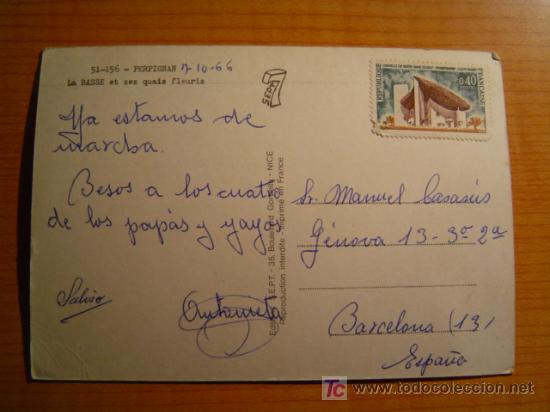 51-156 - PERPIGNAN 7-10-66
La BASSE et ses quais fleuris
SEPT
REPUBLIQUE FRANÇAISE
0,40
Ya estamos de
marcha.
Besos a los cuatro
de los papás y yayos
Salvio
Antonieta
S.E.P.T. - 35, Boulevard - NICE
Reproduction interdite - Imprimé en France
Sr. Manuel Casasús
Génova 13 - 3º 2ª
Barcelona (13)
España
www.todocoleccion.net